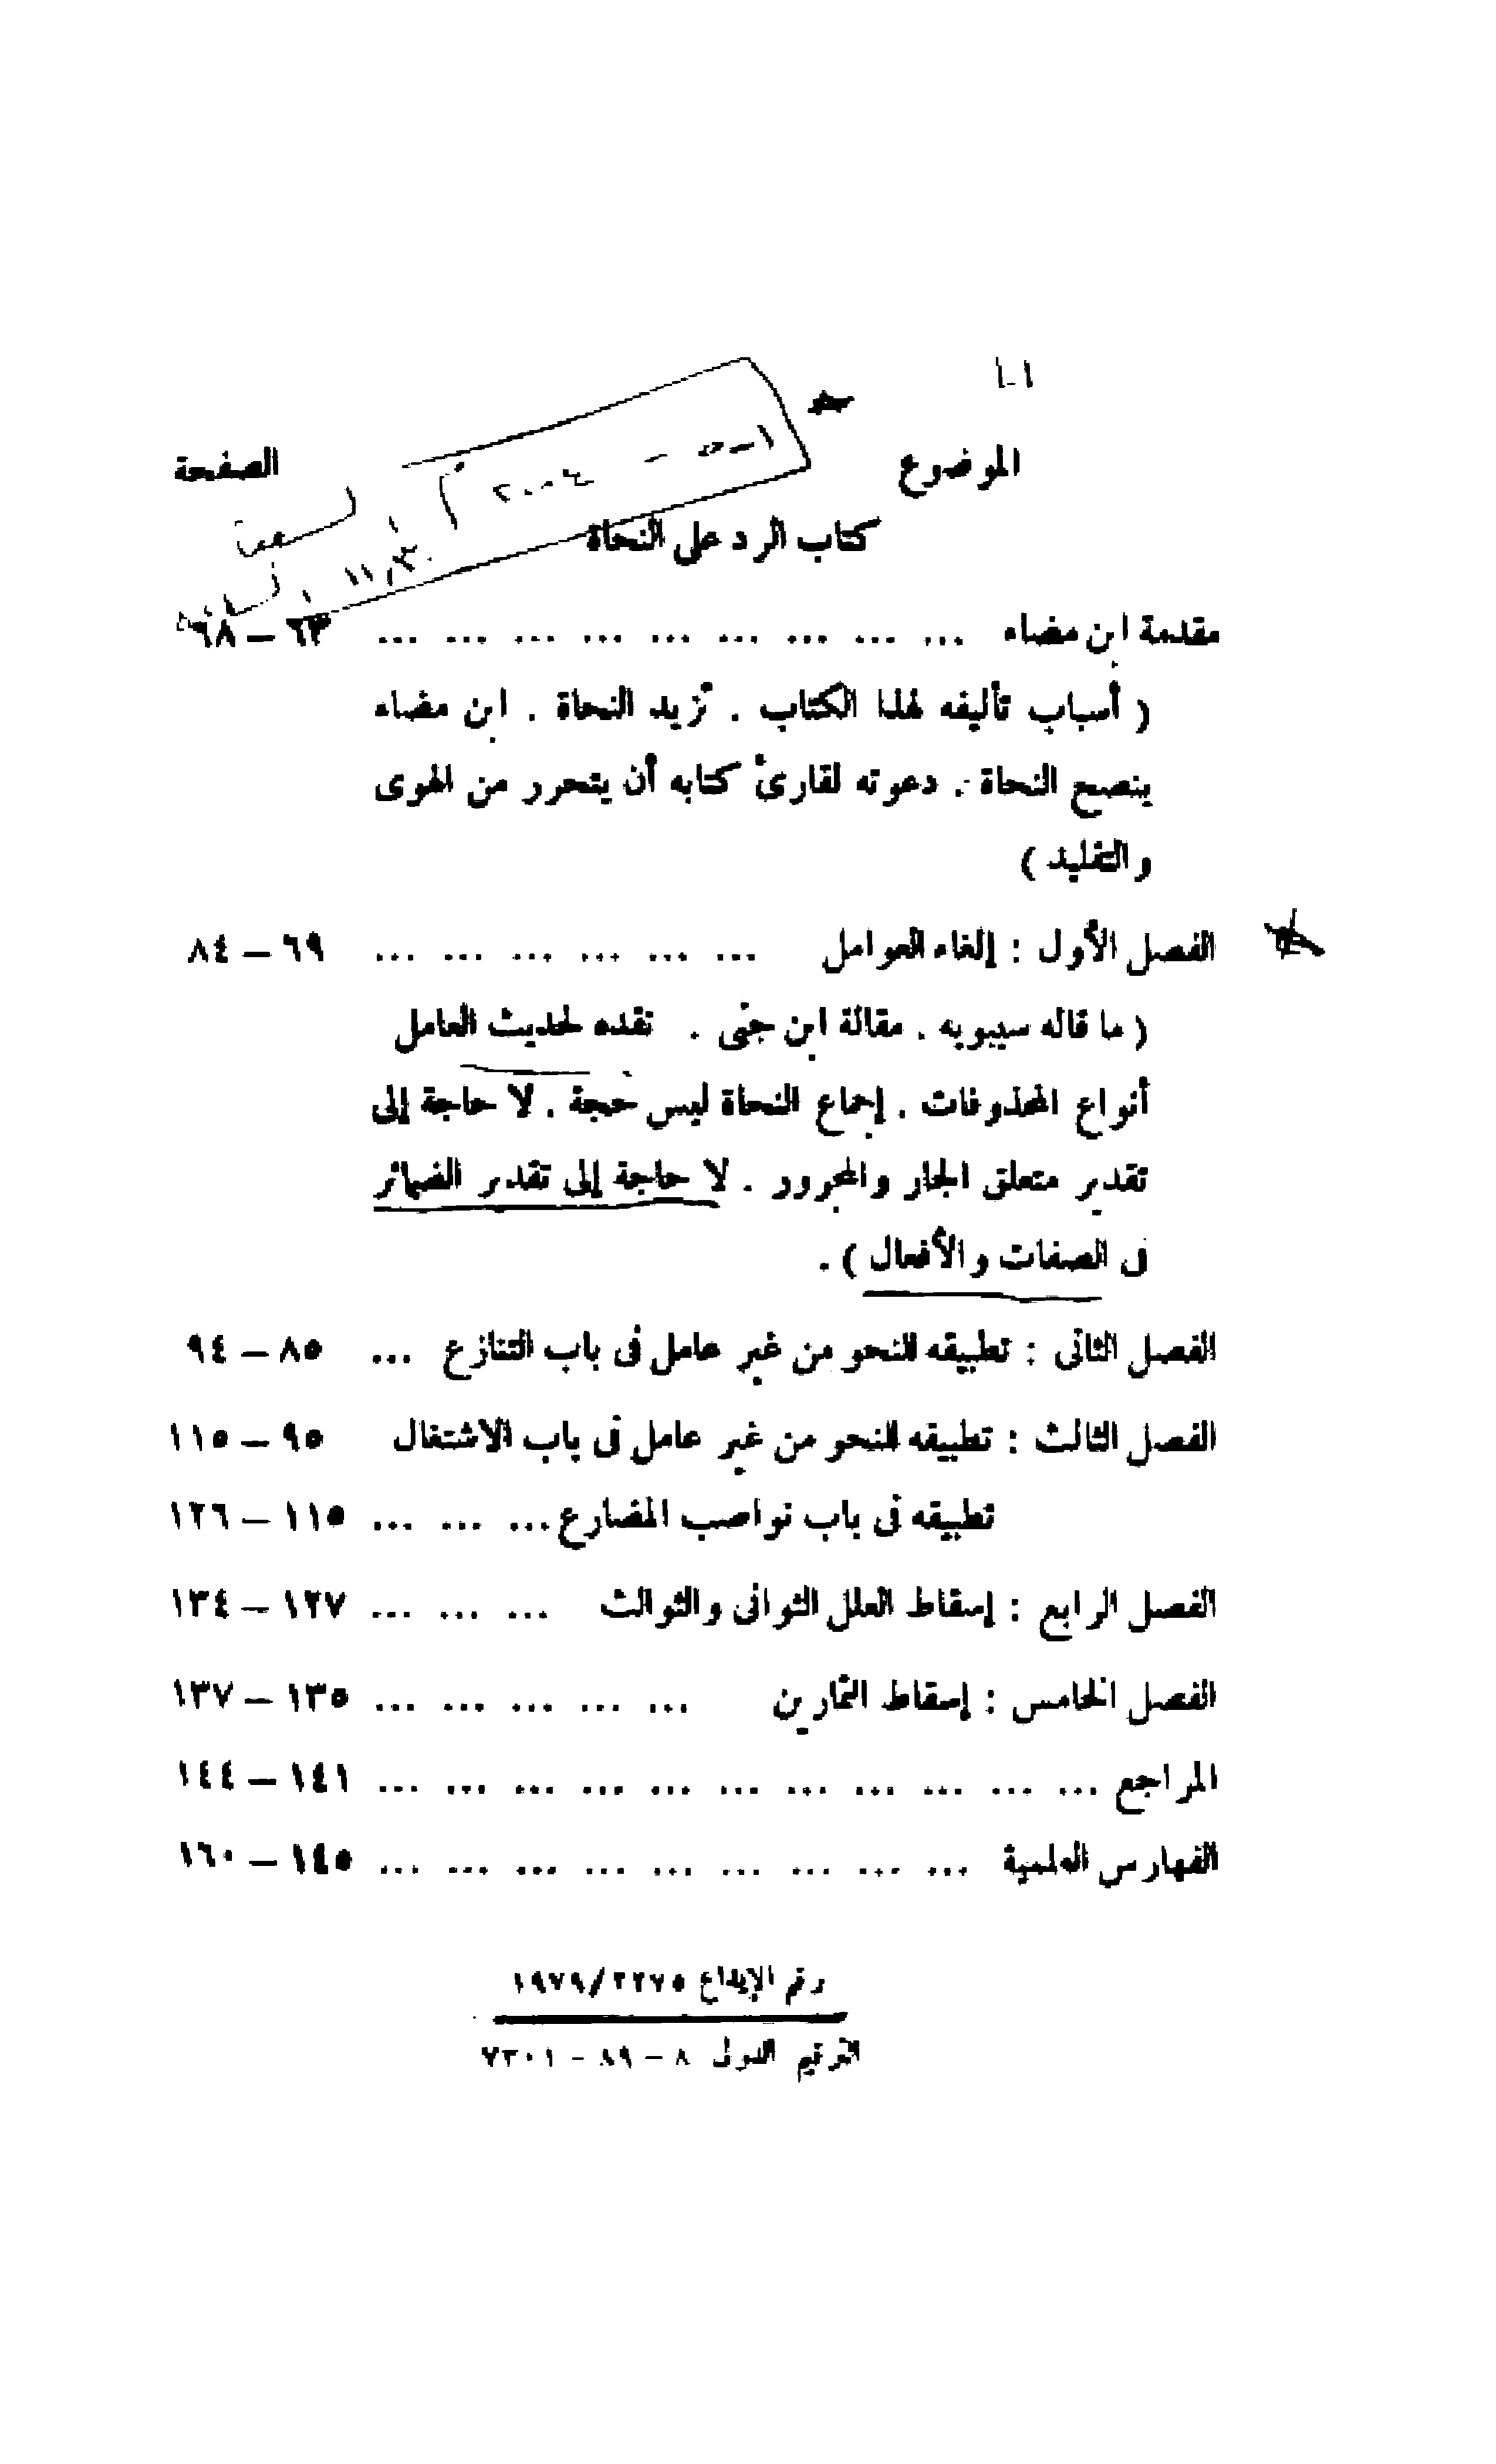 الموضوع الصفحة
كتاب الرد على النحاة
مقدمة ابن مضاء ... ... ... ... ... ... ... ... ... ٦٣ – ٦٨
( أسباب تأليفه لهذا الكتاب . تزيد النحاة . ابن مضاء
ينصح النحاة . دعوته لقارئ كتابه أن يتحرر من الهوى
والتقليد )
الفصل الأول : إلغاء العوامل ... ... ... ... ... ... ٦٩ – ٨٤
( ما قاله سيبويه . مقالة ابن جنى . نقده لحديث العامل
أنواع المحذوفات . إجماع النحاة ليس حجة . لا حاجة إلى
تقدير متعلق الجار والمجرور . لا حاجة إلى تقدير الضمائر
فى الصفات والأفعال ) .
الفصل الثانى : تطبيقه للنحو من غير عامل فى باب التنازع ... ٨٥ – ٩٤
الفصل الثالث : تطبيقه للنحو من غير عامل فى باب الاشتغال ٩٥ – ١١٥
تطبيقه فى باب نواصب المضارع ... ... ... ١١٥ – ١٢٦
الفصل الرابع : إسقاط العلل الثوانى والثوالث ... ... ... ١٢٧ – ١٣٤
الفصل الخامس : إسقاط التمارين ... ... ... ... ... ١٣٥ – ١٣٧
المراجع ... ... ... ... ... ... ... ... ... ... ... ١٤١ – ١٤٤
الفهارس العلمية ... ... ... ... ... ... ... ... ... ١٤٥ – ١٦٠
رقم الإيداع ٢٢٧٥/١٩٧٩
الترقيم الدولى ٨ – ٨٩ – ٧٣٠١